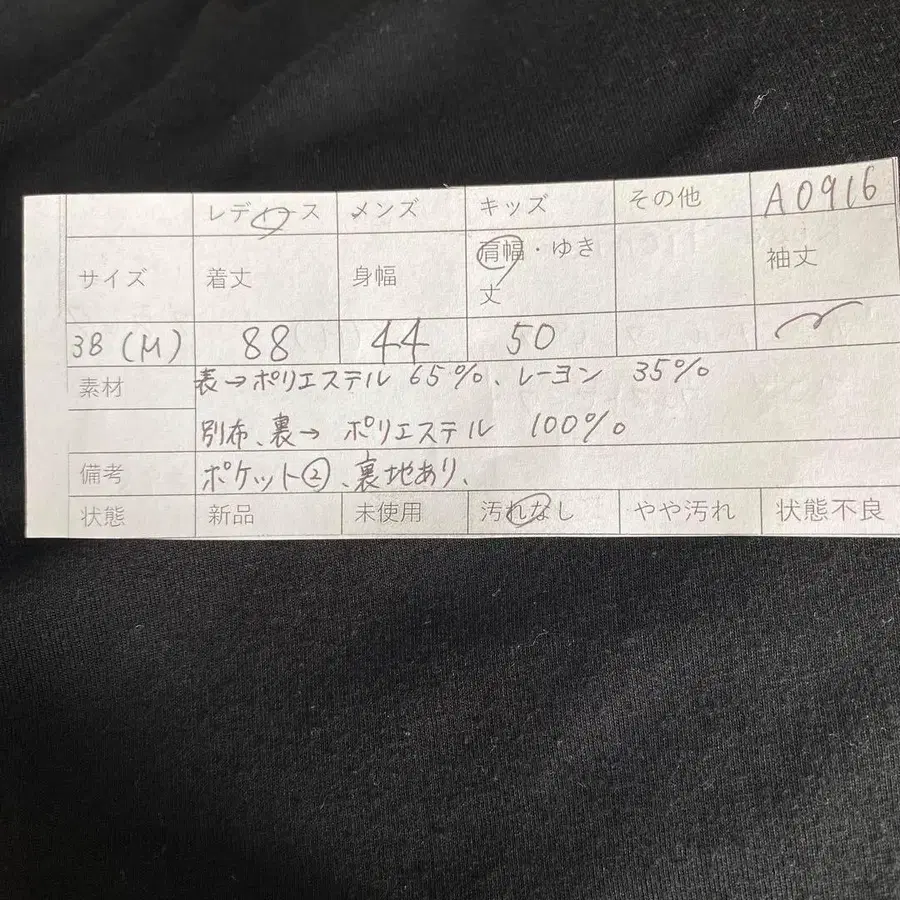 レディース メンズ キッズ その他 A0916
サイズ 着丈 身幅 肩幅・ゆき丈 袖丈
38(M) 88 44 50
素材 表→ポリエステル 65%、レーヨン 35%
別布、裏→ ポリエステル 100%
備考 ポケット②、裏地あり、
状態 新品 未使用 汚れなし やや汚れ 状態不良